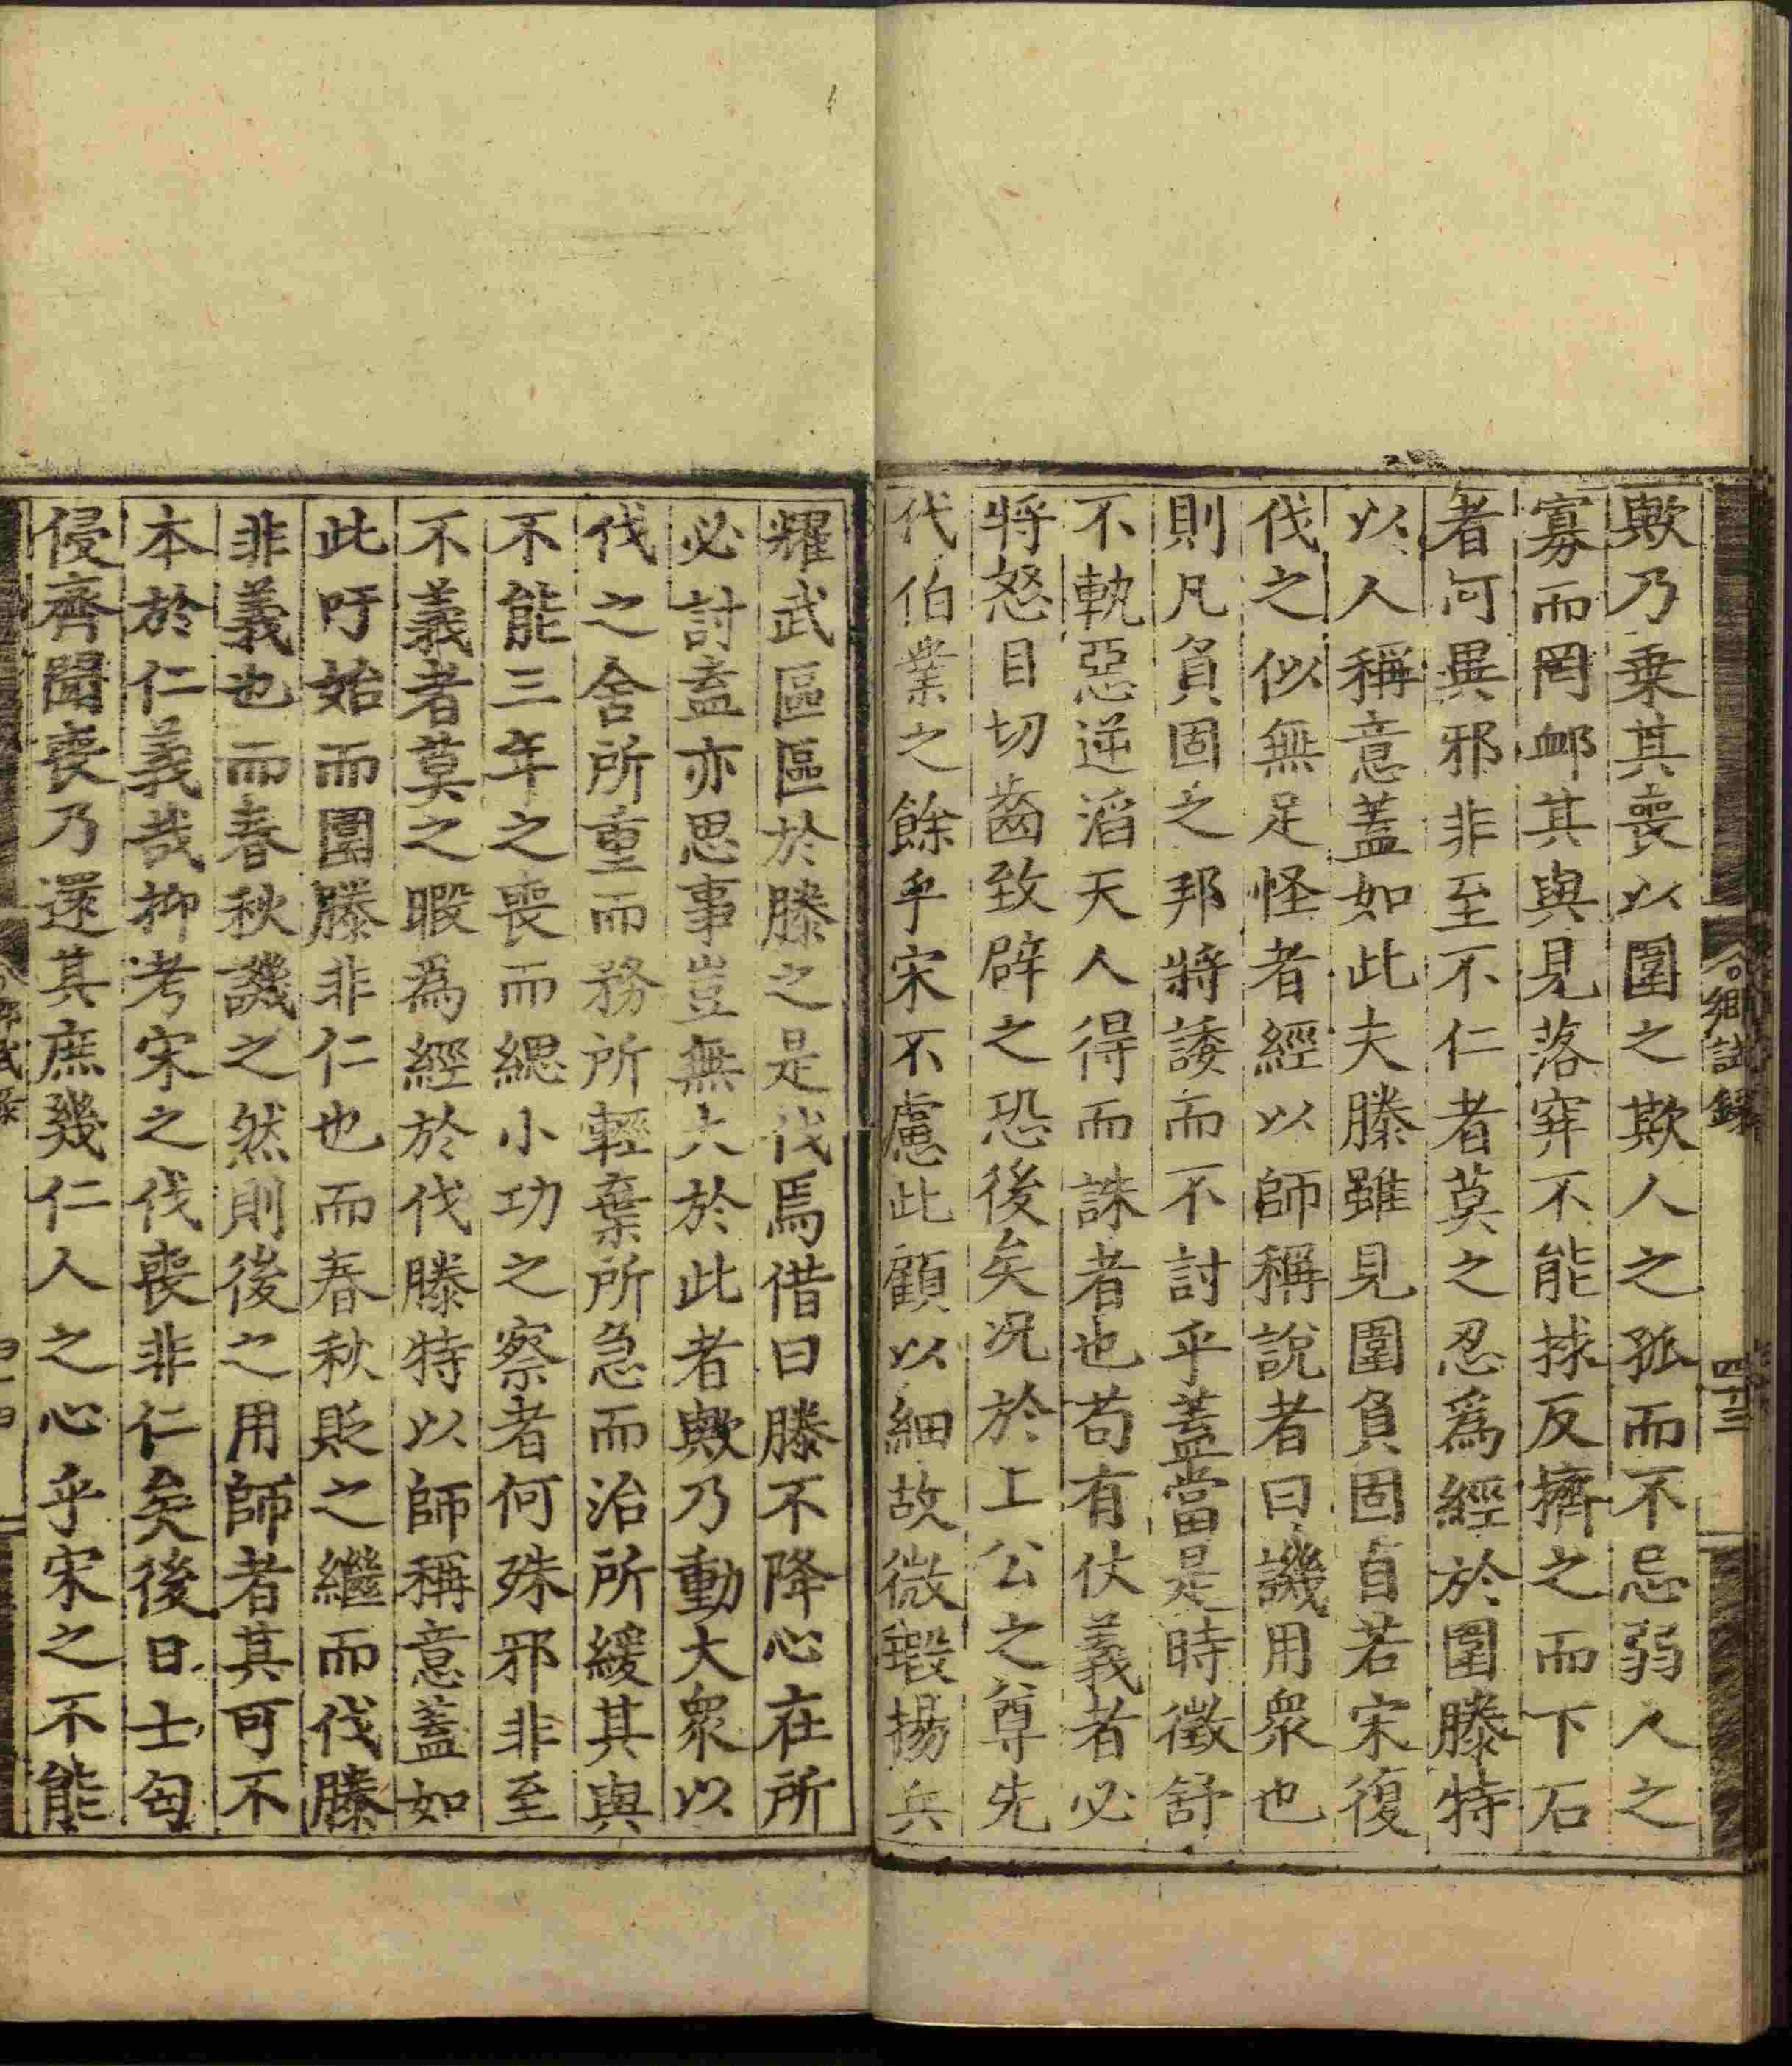 歟乃乗其喪以圍之欺人之孤而不忌弱人之
寡而罔衈其與見落穽不能捄反擠之而下石
者何異邪非至不仁者莫之忍爲經於圍滕特
以人稱意蓋如此夫滕雖見圍負固自若宋復
伐之似無足怪者經以師稱說者曰譏用衆也
則凡負固之邦將諉而不討乎蓋當是時徵舒
不軌惡逆滔天人得而誅者也苟有仗義者必
将怒目切齒致辟之恐後矣况於上公之尊先
代伯業之餘乎宋不慮此顧以細故微瑕揚兵
鄉試錄
四十三
耀武區區於滕之是伐焉借曰滕不降心在所
必討盍亦思事豈無大於此者歟乃動大衆以
伐之舍所重而務所輕棄所急而治所緩其與
不能三年之喪而緦小功之察者何殊邪非至
不義者莫之暇爲經於伐滕特以師稱意蓋如
此吁始而圍滕非仁也而春秋貶之繼而伐滕
非義也而春秋譏之然則後之用師者其可不
本於仁義哉抑考宋之伐喪非仁矣後日士匄
侵齊聞喪乃還其庶幾仁人之心乎宋之不能